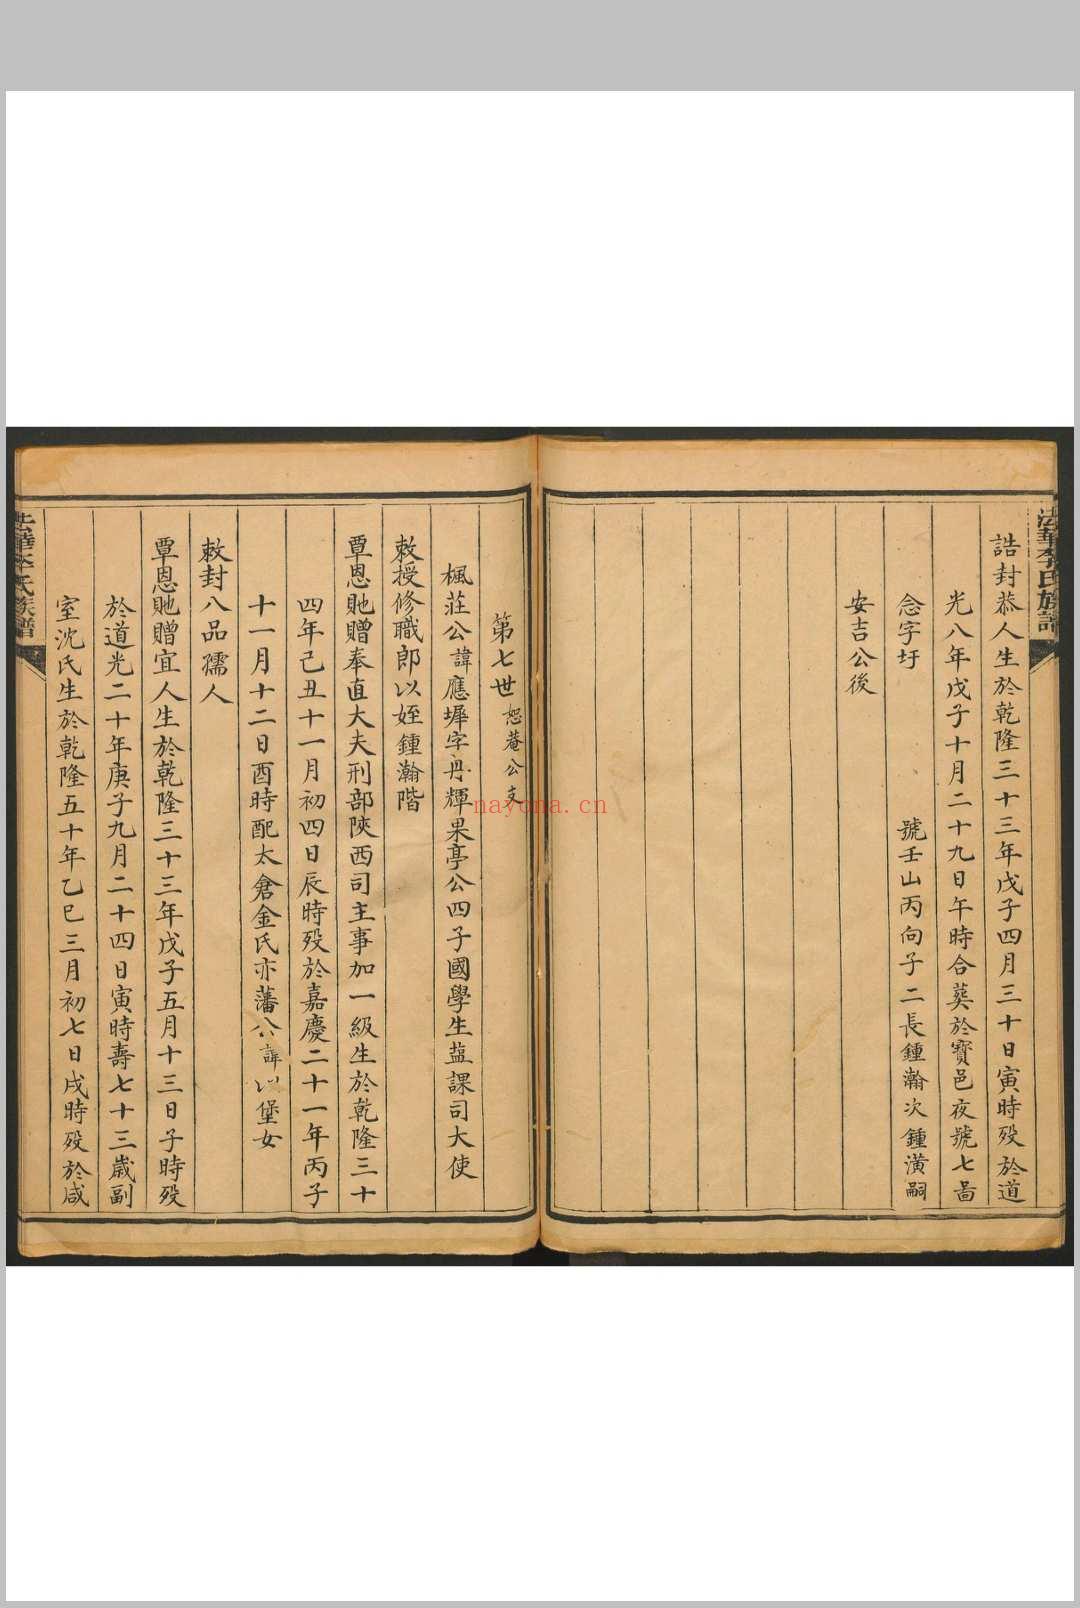 法華李氏族譜
誥封恭人生於乾隆三十三年戊子四月三十日寅時歿於道
光八年戊子十月二十九日午時合葬於寶邑夜號七啚
念字圩 號壬山丙向子二長鍾瀚次鍾潢嗣
安吉公後
第七世 恕菴公支
楓莊公諱應墀字丹輝果亭公四子國學生藍課司大使
敕授修職郎以姪鍾瀚階
覃恩貤贈奉直大夫刑部陝西司主事加一級生於乾隆三十
四年己丑十一月初四日辰時歿於嘉慶二十一年丙子
十一月十二日酉時配太倉金氏亦藩公諱以堡女
敕封八品孺人
覃恩貤贈宜人生於乾隆三十三年戊子五月十三日子時歿
於道光二十年庚子九月二十四日寅時壽七十三歲副
室沈氏生於乾隆五十年乙巳三月初七日戌時歿於咸
法華李氏族譜
nayona.cn